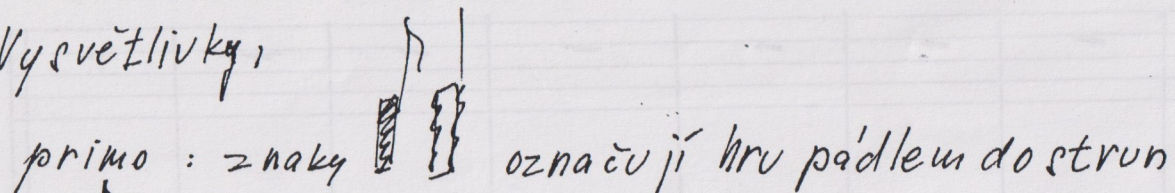 Vysvětlivky,
primo : znaky označují hru pádlem do strun